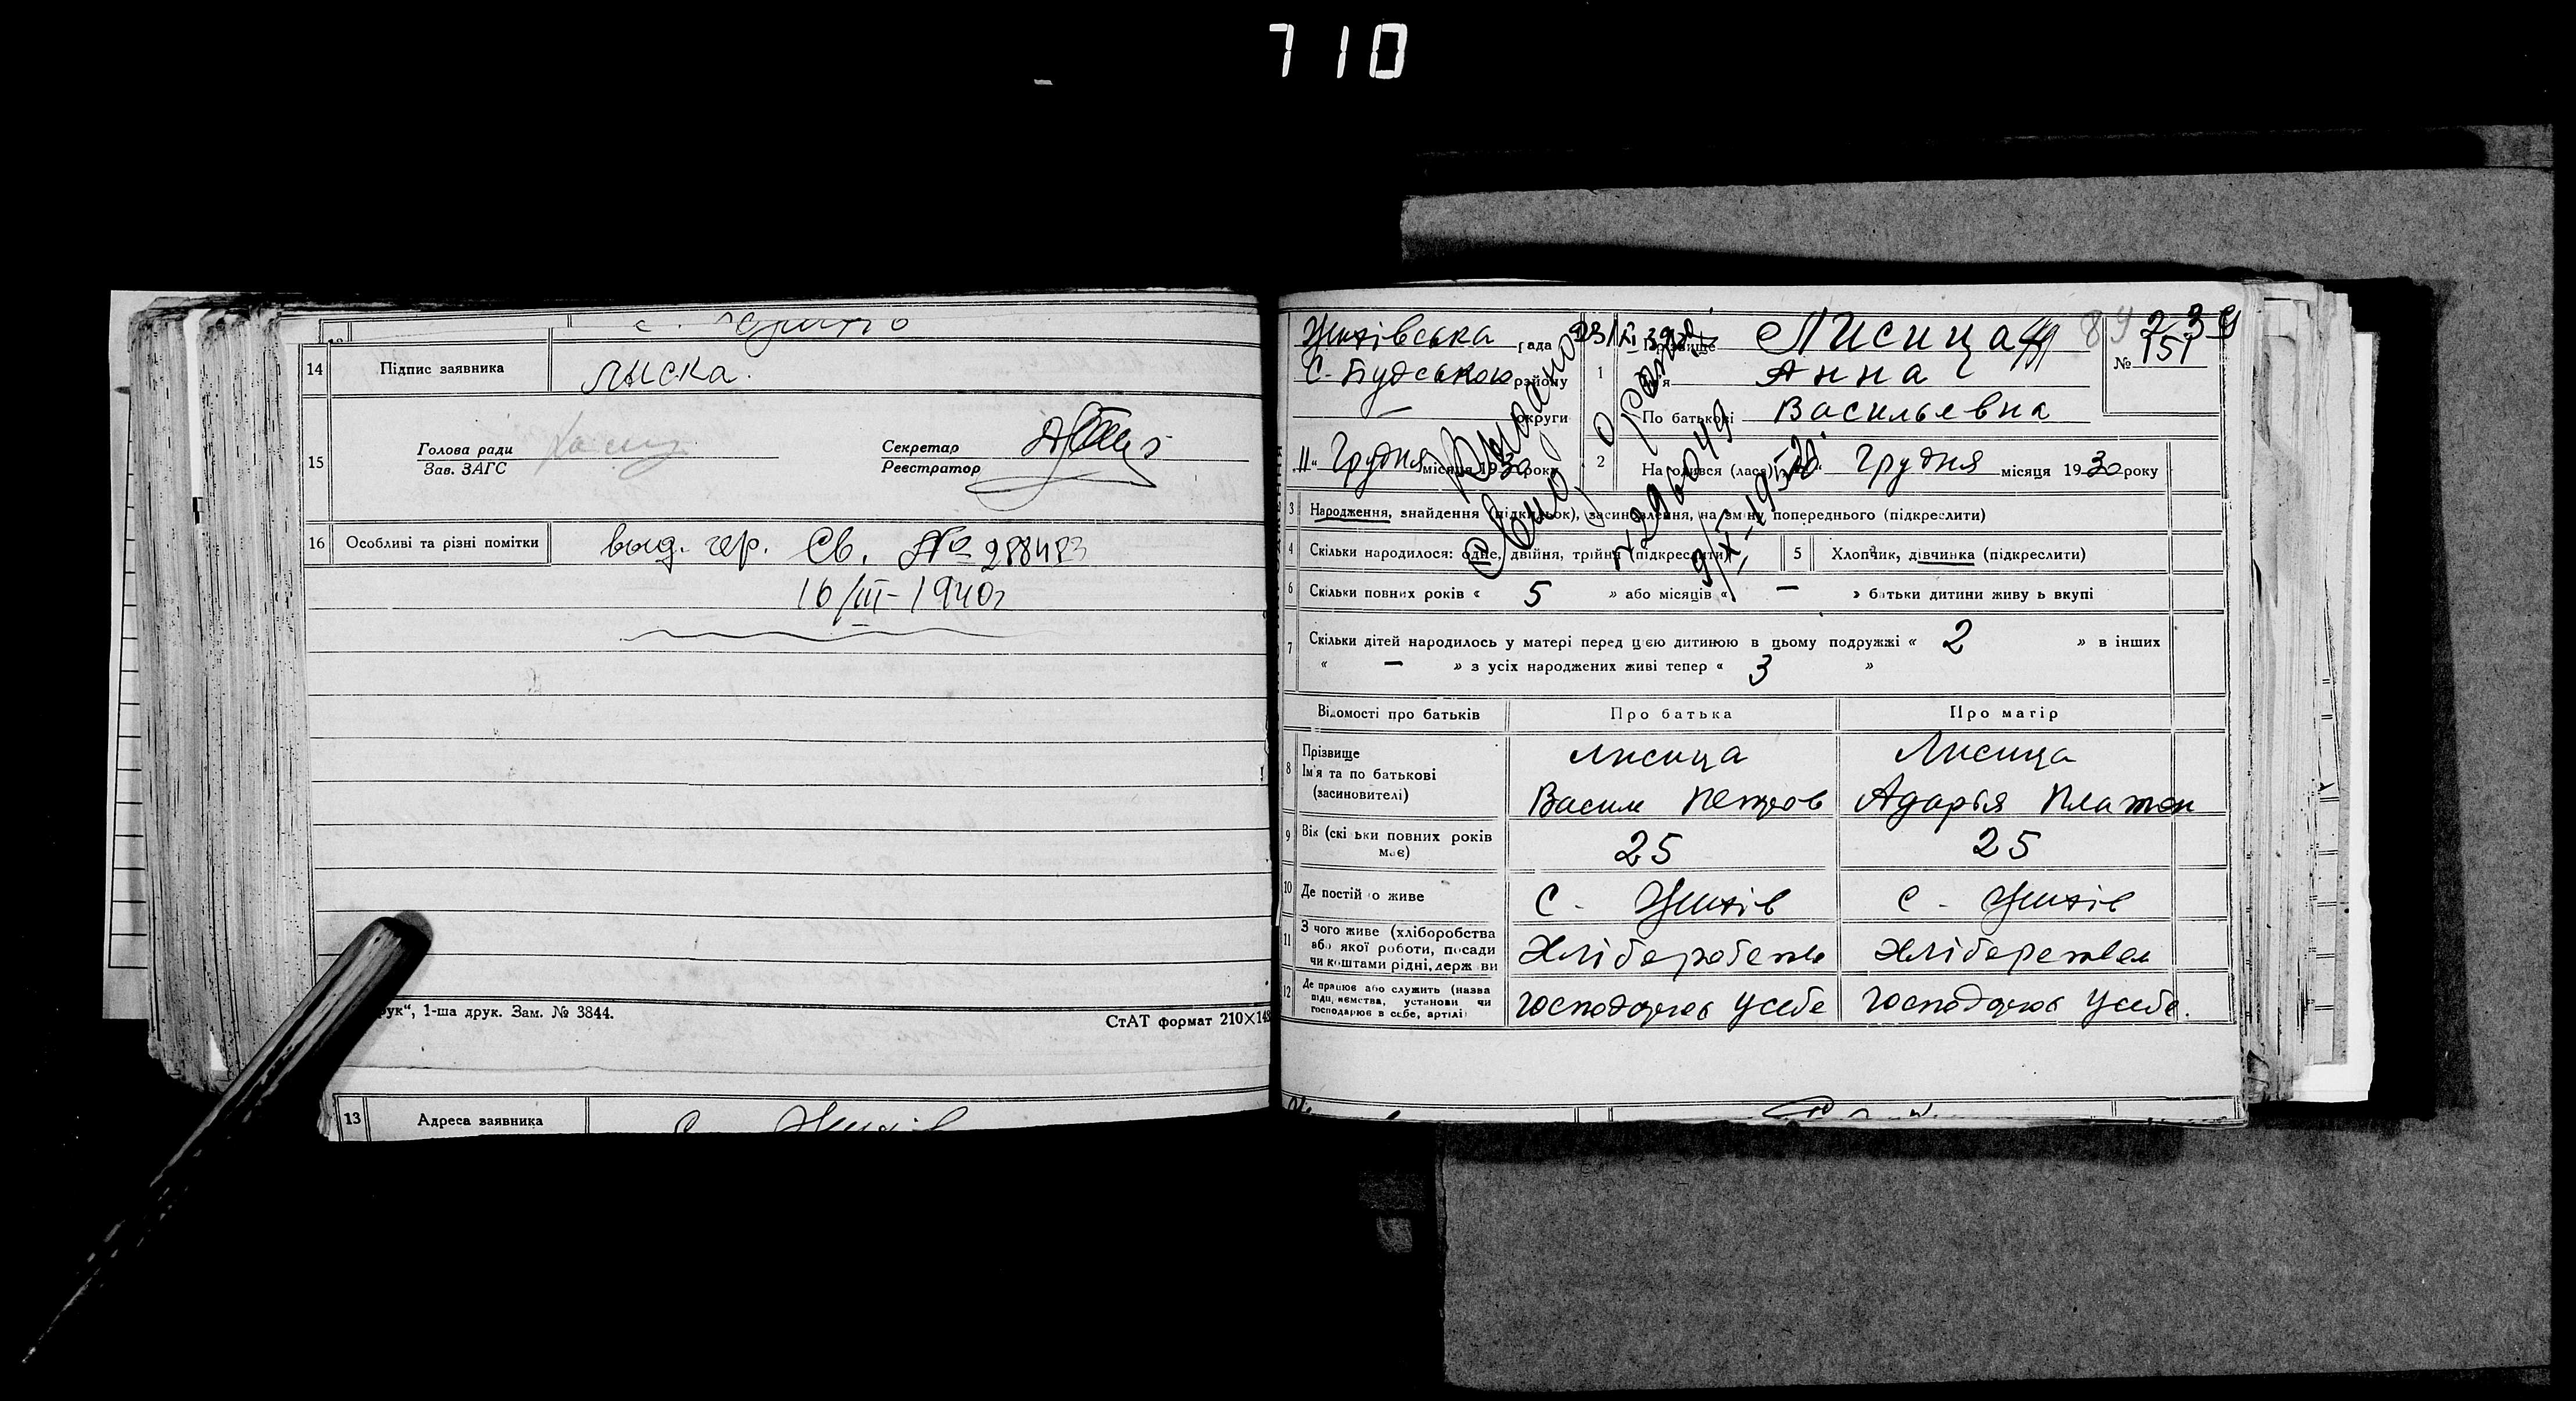 710
14 Підпис заявника Лиска.
15 Голова ради
Зав. ЗАГС
Секретар
Реєстратор
16 Особливі та різні помітки выд. Св. № 288483
16/III-1940г
рук“, 1-ша друк. Зам. № 3844.
СтАТ формат 210×148
13 Адреса заявника с.
рада
С-Будською району
округи
„11“ Грудня місяця 1930 року
1 Прізвище Лисица
Ім'я Анна
По батькові Васильевна
84 234
№ 151
2 Народився (лася) Грудня місяця 1930 року
Выдано
повтор
9/XI-195
3 Народження, знайдення (підкидьок), засиновлення, на зміну попереднього (підкреслити)
4 Скільки народилося: одне, двійня, трійня (підкреслити)
5 Хлопчик, дівчинка (підкреслити)
6 Скільки повних років « 5 » або місяців « — » батьки дитини живуть вкупі
7 Скільки дітей народилось у матері перед цією дитиною в цьому подружжі « 2 » в інших
« — » з усіх народжених живі тепер « 3 »
Відомості про батьків Про батька Про матір
8 Прізвище
Ім'я та по батькові
(засиновителі)
Лисица
Васил Петров
Лисица
Адарья Платон
9 Вік (скільки повних років має) 25 25
10 Де постійно живе с. с.
11 З чого живе (хліборобства
або якої роботи, посади
чи коштами рідні, держави
12 Де працює або служить (назва
підприємства, установи чи
господарює в себе, артілі)
Господарює у себе Господарює у себе.